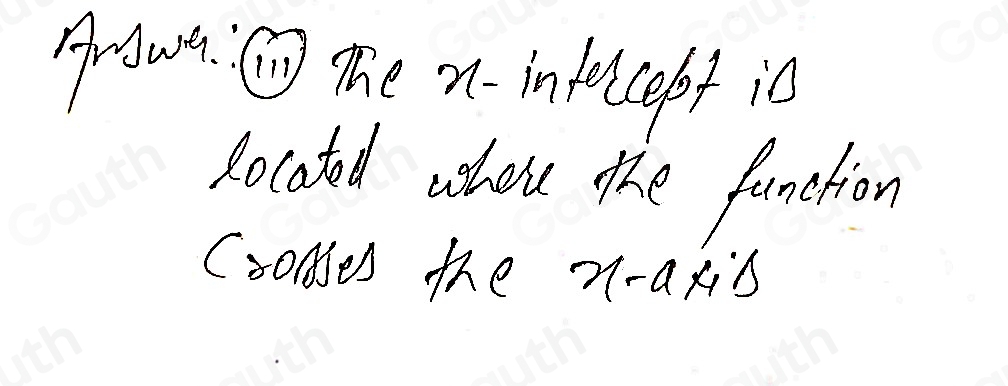 Answer: (iii) The x-intercept is
located where the function
crosses the x-axis